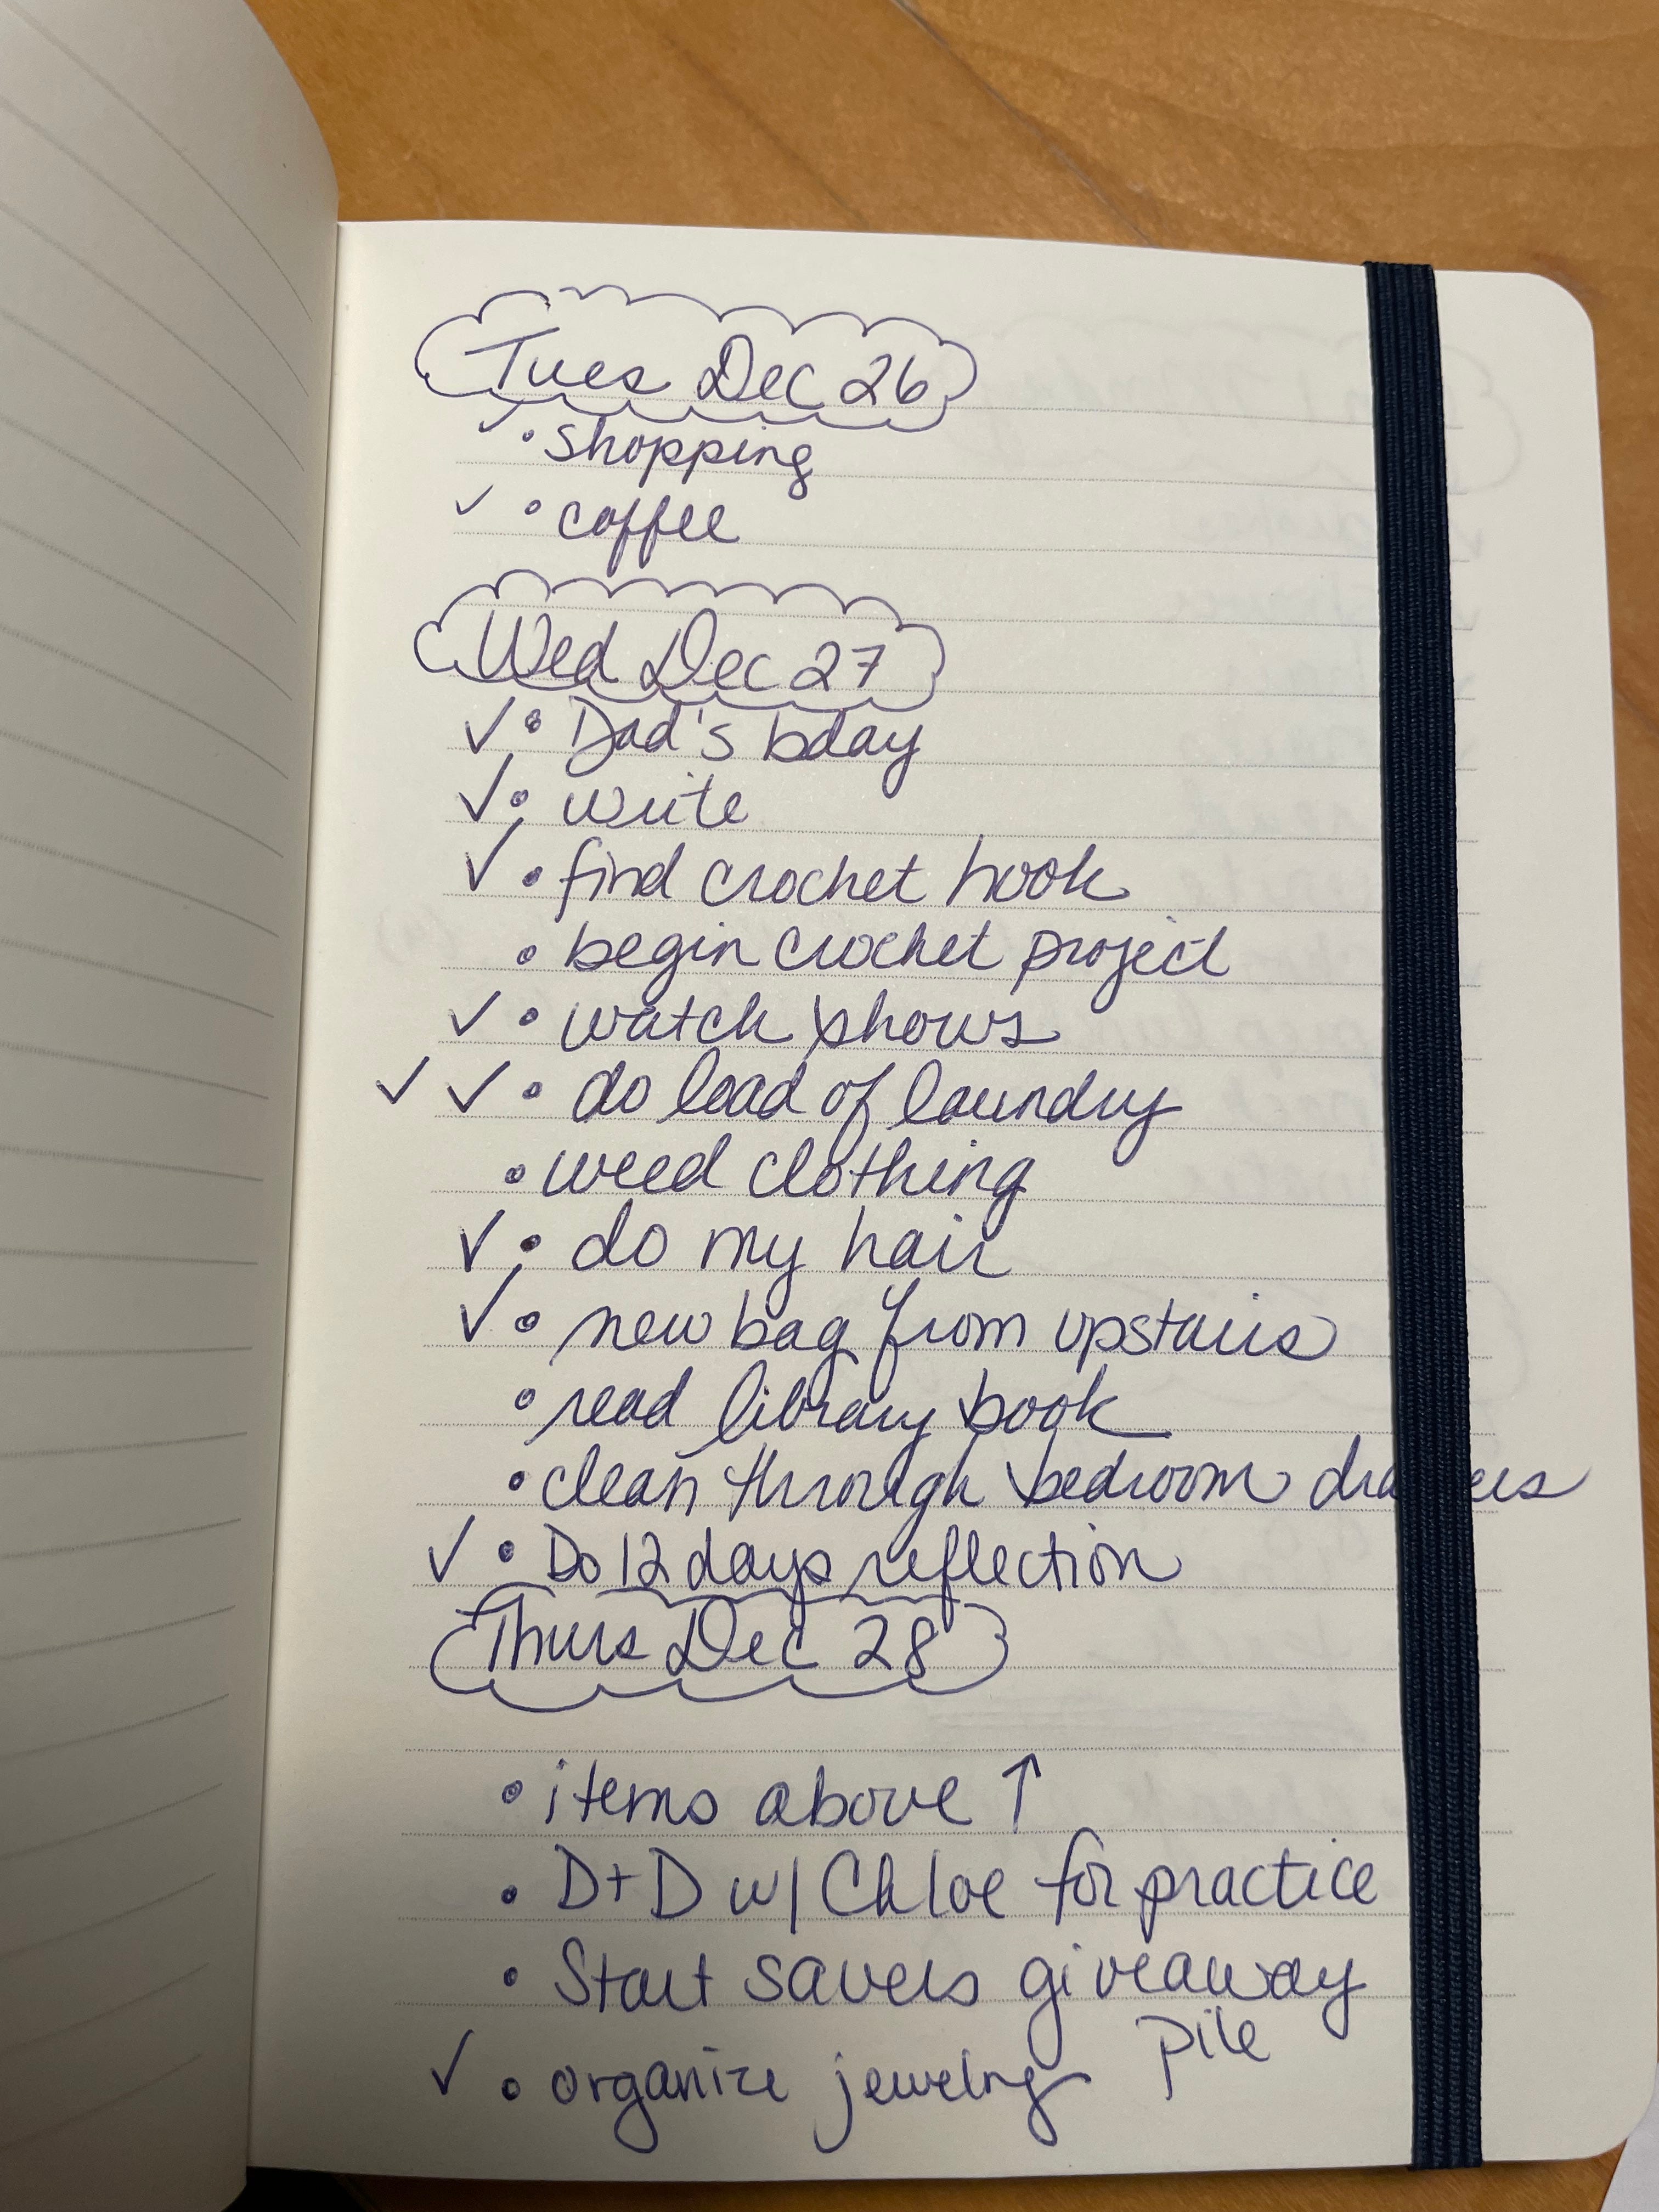 Tues Dec 26
✓ • shopping
✓ • coffee
Wed Dec 27
✓ • Dad's bday
✓ • write
✓ • find crochet hook
• begin crochet project
✓ • watch shows
✓ ✓ • do load of laundry
• weed clothing
✓ • do my hair
✓ • new bag from upstairs
• read library book
• clean through bedroom
✓ • Do 12 days reflection
Thurs Dec 28
• items above ↑
• D+D w/ Chloe for practice
• Start savers giveaway
pile
✓ • organize jewelry